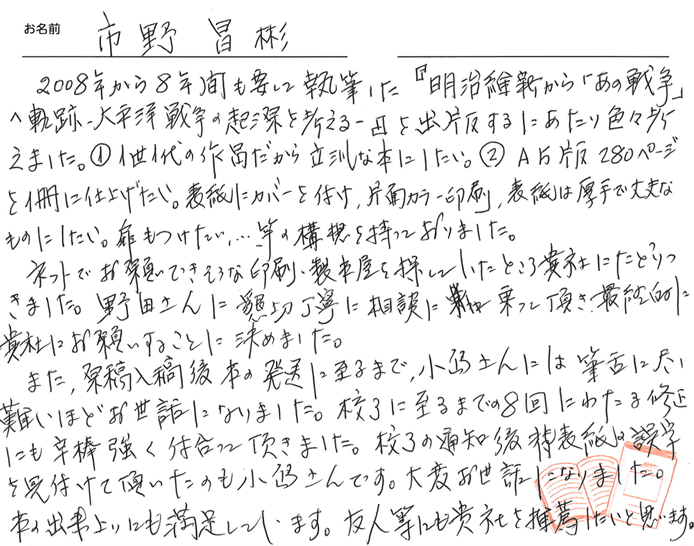 お名前 市野 昌彬
2008年から8年間も要して執筆した『明治維新から「あの戦争」
への軌跡-太平洋戦争の起源を考える-』を出版するにあたり色々考
えました。①1世1代の作品だから立派な本にしたい。② A5版 280ページ
を1冊に仕上げたい。表紙にカバーを付け、片面カラー印刷、表紙は厚手で丈夫な
ものにしたい。扉もつけたい、…等の構想を持っておりました。
ネットでお願いできそうな印刷・製本屋を探していたところ貴社にたどりつ
きました。野田さんに懇切丁寧に相談に乗って頂き、最終的に
貴社にお願いすることに決めました。
また、原稿入稿後本の発送に至るまで、小島さんには筆舌に尽し
難いほどお世話になりました。校了に至るまでの8回にわたる修正
にも辛棒強く付合って頂きました。校了の通知後 表紙の誤字
を見付けて頂いたのも小島さんです。大変お世話になりました。
本の出来上りにも満足しています。友人等にも貴社を推薦したいと思います。